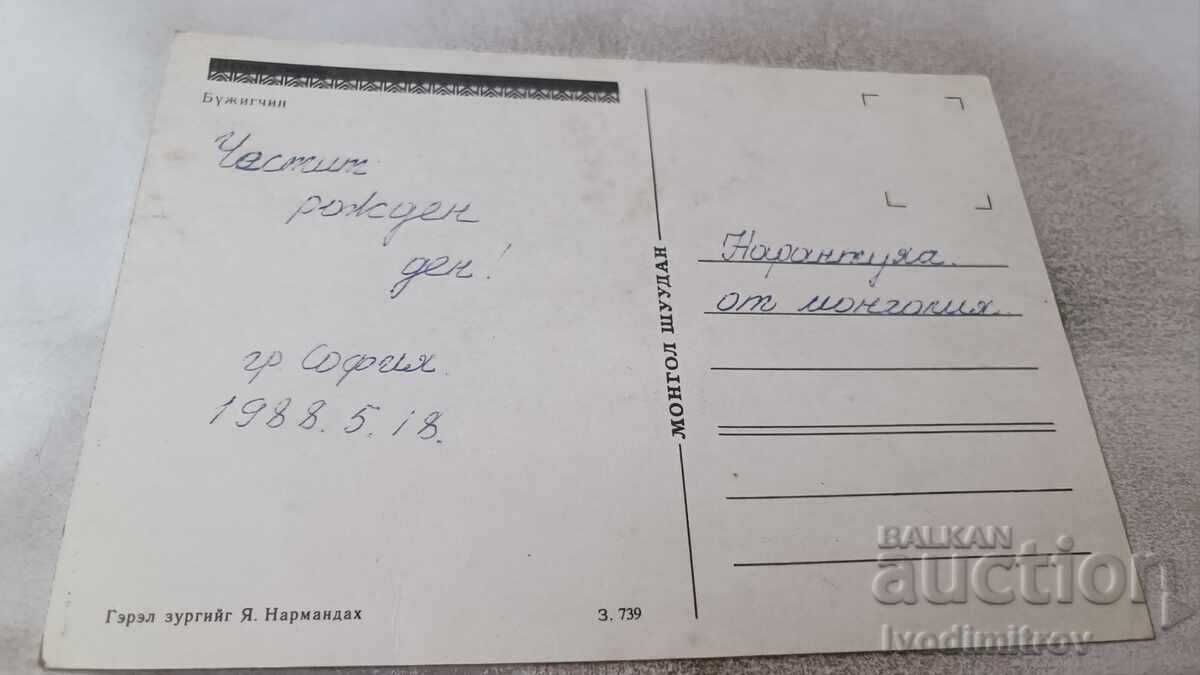 Бүжигчин
Честит
рожден
ден!
гр София.
1988.5.18.
Гэрэл зургийг Я. Нармандах
З. 739
МОНГОЛ ШУУДАН
Нарантуяа.
от монголия.
BALKAN
auction
Ivodimitrov